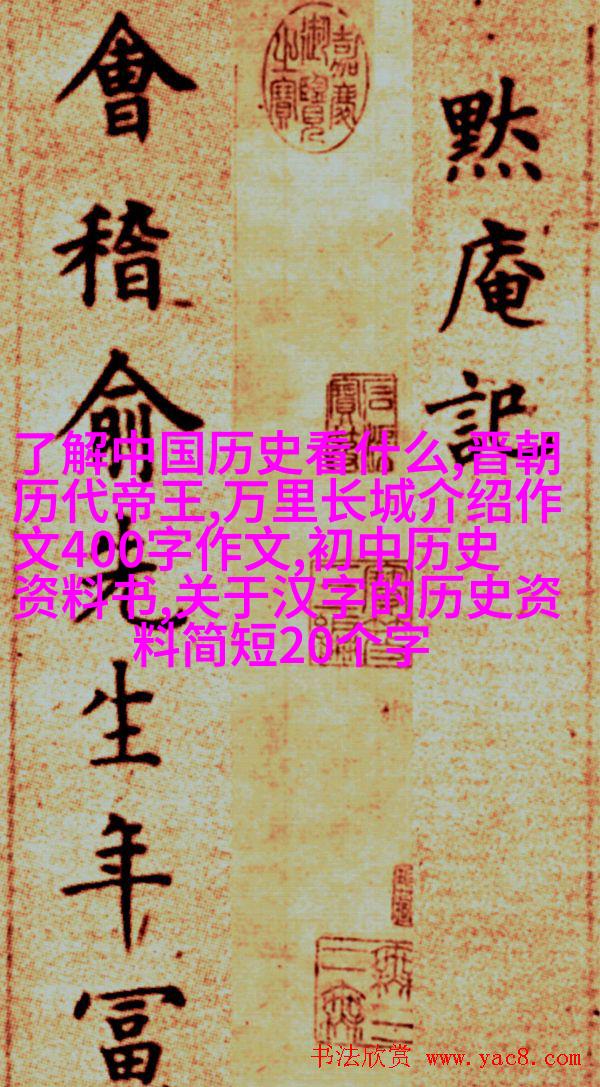 默庵記
會稽俞先生年冨
嘉慶
御覽
之寶
石渠
寶笈
了解中国历史看什么,晋朝
历代帝王,万里长城介绍作
文400字作文,初中历史
资料书,关于汉字的历史资
料简短20个字
书法欣赏 www.yac8.com